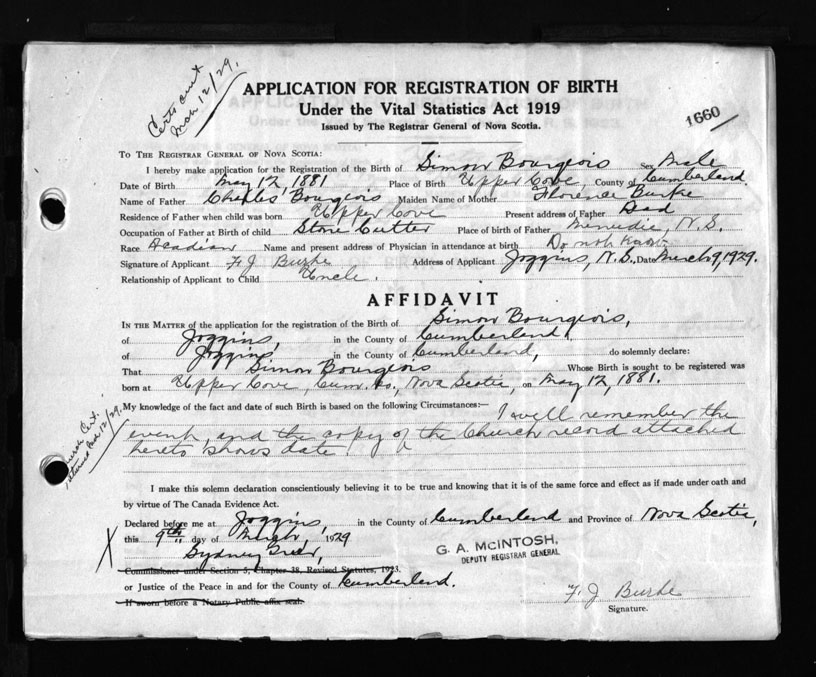 Certs cert
Mch 12/29.
APPLICATION FOR REGISTRATION OF BIRTH
Under the Vital Statistics Act 1919
Issued by The Registrar General of Nova Scotia.
1660
TO THE REGISTRAR GENERAL OF NOVA SCOTIA:
I hereby make application for the Registration of the Birth of Simon Bourgeois Sex Male
Date of Birth May 12, 1881 Place of Birth Upper Cove, County of Cumberland.
Name of Father Charles Bourgeois Maiden Name of Mother Florence Burke
Residence of Father when child was born Upper Cove Present address of Father Dead
Occupation of Father at Birth of child Stone Cutter Place of birth of Father N.S.
Race Acadian Name and present address of Physician in attendance at birth Do not know
Signature of Applicant F. J Burke Address of Applicant Joggins, N.S., Date March 9, 1929.
Relationship of Applicant to Child Uncle.
AFFIDAVIT
IN THE MATTER of the application for the registration of the Birth of Simon Bourgeois,
of Joggins, in the County of Cumberland,
of Joggins, in the County of Cumberland, do solemnly declare:
That Simon Bourgeois Whose Birth is sought to be registered was
born at Upper Cove, Cum. Co., Nova Scotia, on May 12, 1881.
My knowledge of the fact and date of such Birth is based on the following Circumstances:— I well remember the
event, and the copy of the Church record attached
hereto shows date
Church Cert.
returned Mch 12/29.
I make this solemn declaration conscientiously believing it to be true and knowing that it is of the same force and effect as if made under oath and
by virtue of The Canada Evidence Act.
Declared before me at Joggins, in the County of Cumberland and Province of Nova Scotia,
this 9th day of March, 1929
Sydney
G. A. McINTOSH,
DEPUTY REGISTRAR GENERAL
Commissioner under Section 5, Chapter 38, Revised Statutes, 1923.
or Justice of the Peace in and for the County of Cumberland.
If sworn before a Notary Public affix seal.
F. J Burke
Signature.